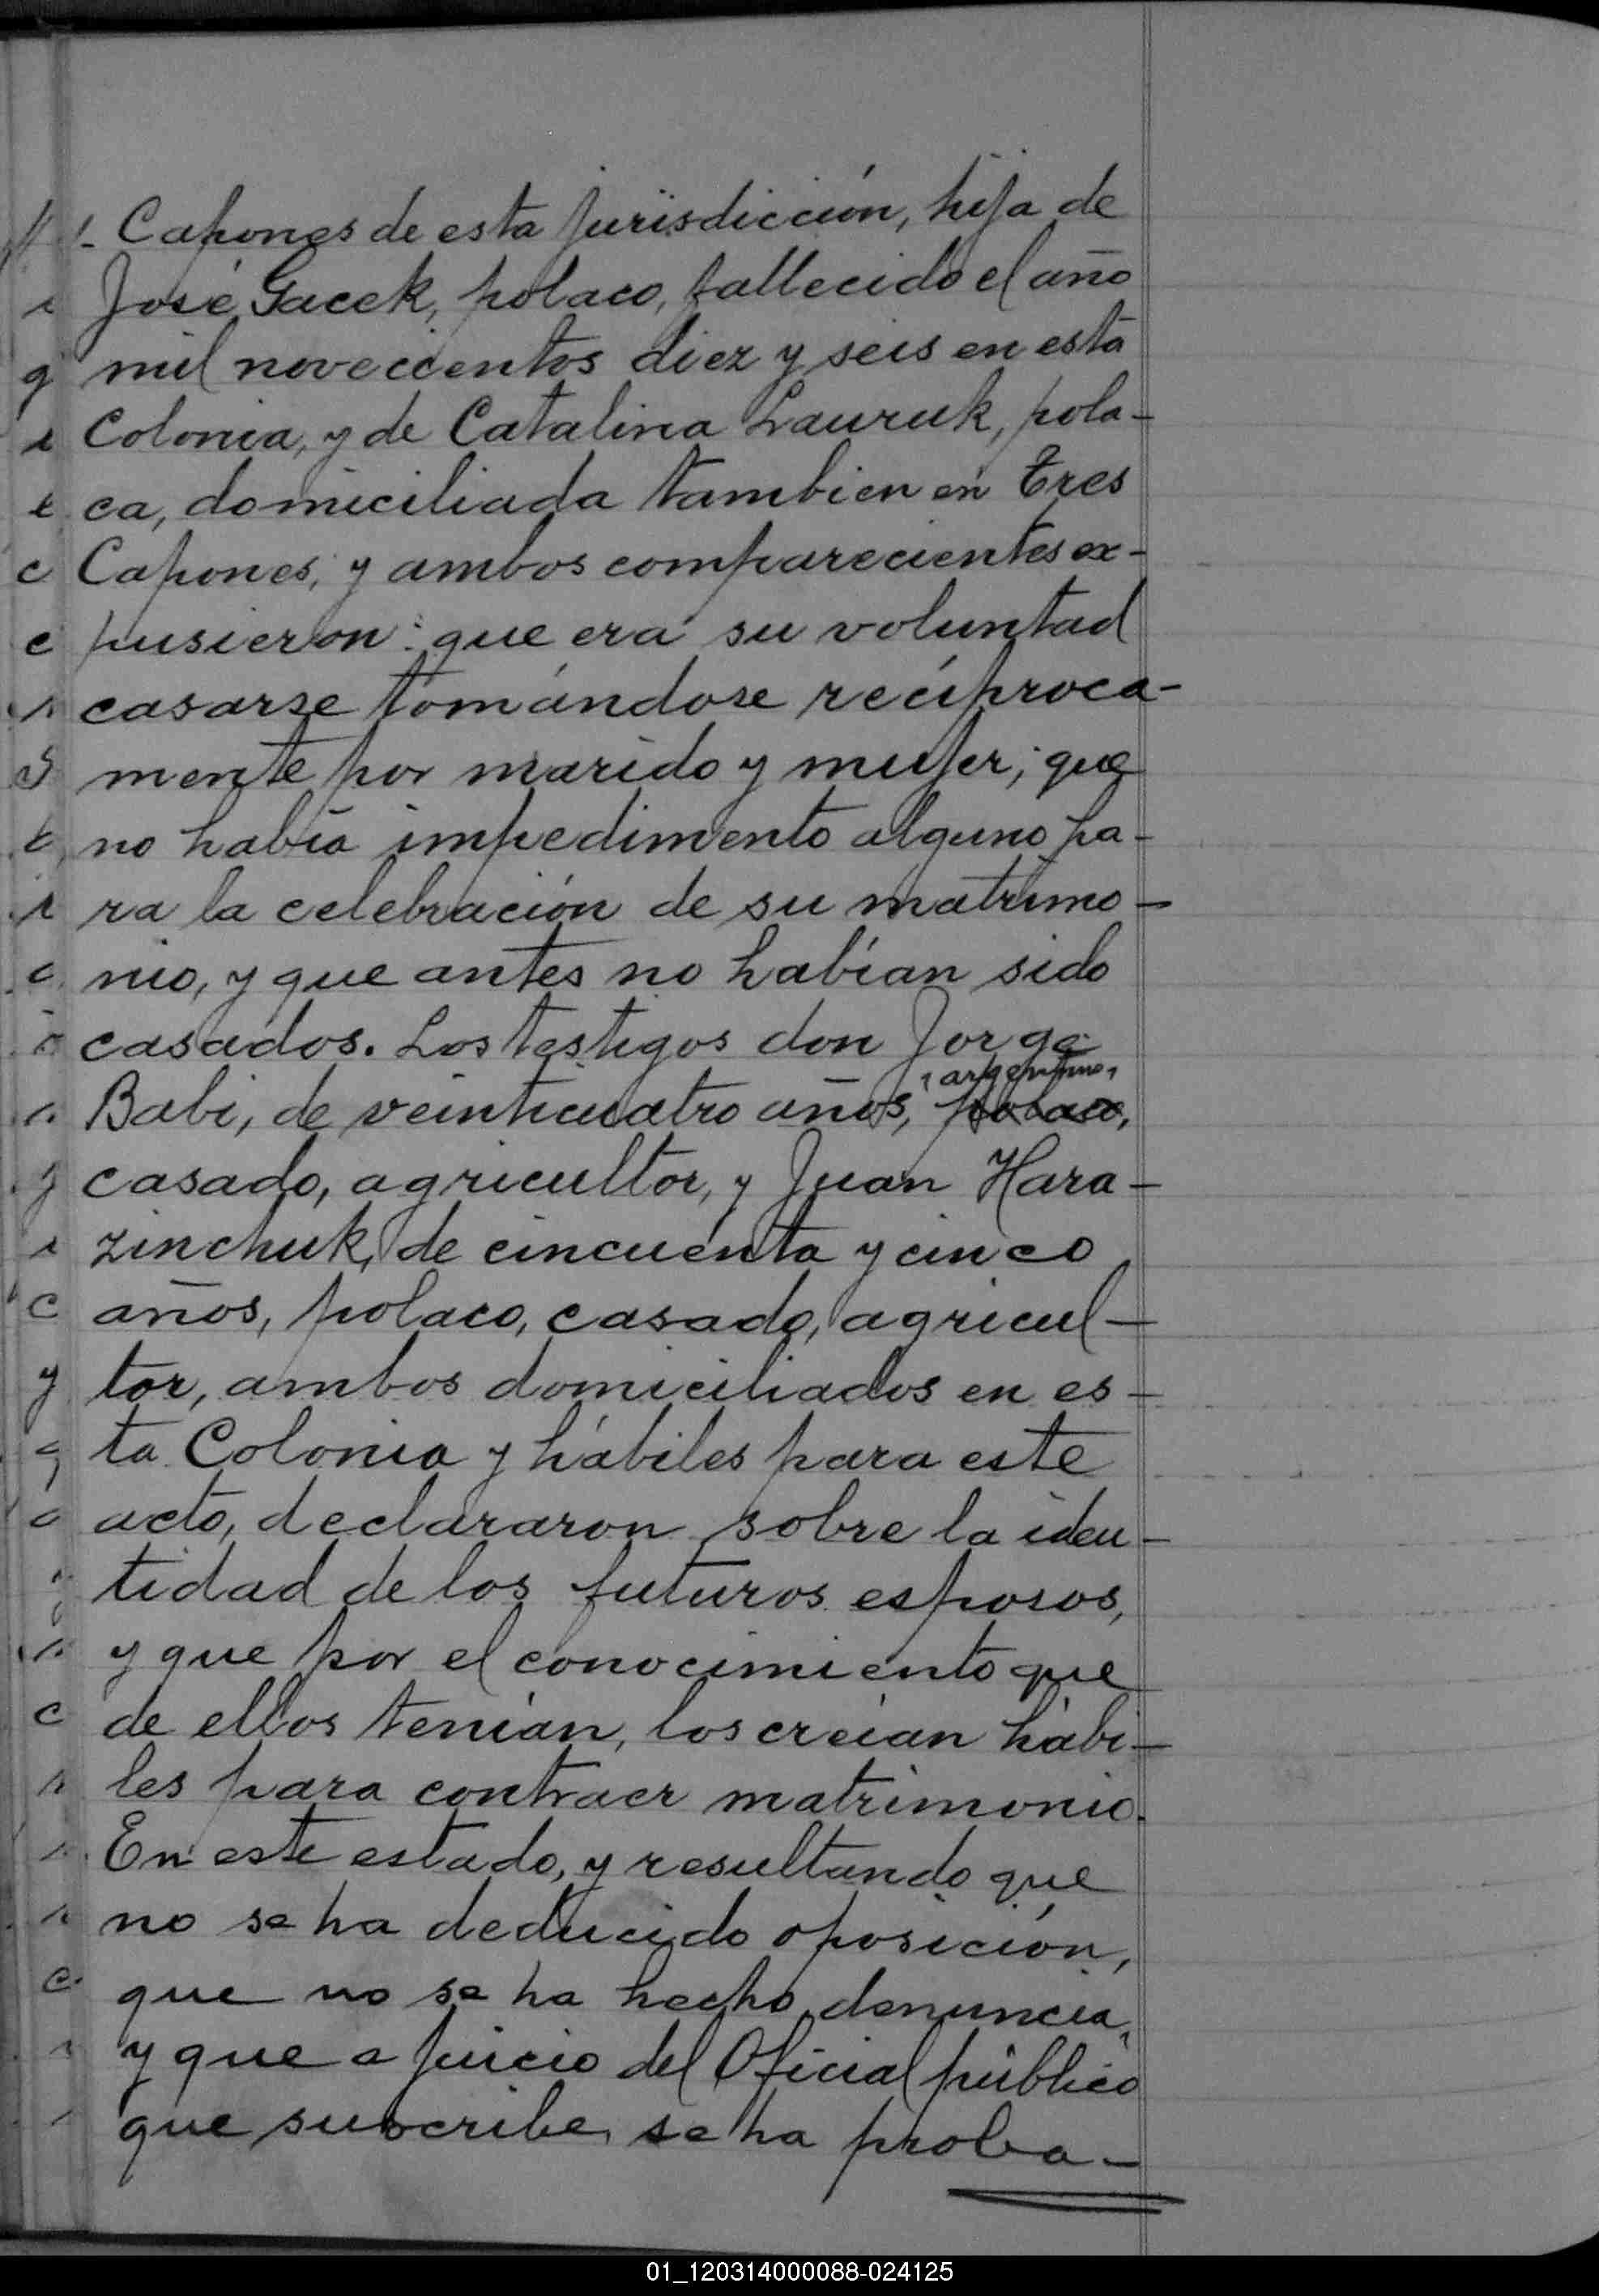 Capones de esta jurisdicción, hija de
José Gacek, polaco, fallecido el año
mil novecientos diez y seis en esta
Colonia, y de Catalina Lauruk, pola-
ca, domiciliada tambien en Tres
Capones; y ambos comparecientes ex-
pusieron: que era su voluntad
casarse tomándose recíproca-
mente por marido y mujer; que
no había impedimento alguno pa-
ra la celebración de su matrimo-
nio, y que antes no habían sido
casados. Los testigos don Jorge
argentino,
Babi, de veinticuatro años, polaco,
casado, agricultor, y Juan Hara-
zinchuk, de cincuenta y cinco
años, polaco, casado, agricul-
tor, ambos domiciliados en es-
ta Colonia y hábiles para este
acto, declararon sobre la iden-
tidad de los futuros esposos,
y que por el conocimiento que
de ellos tenían, los creían hábi-
les para contraer matrimonio.
En este estado, y resultando que
no se ha deducido oposición,
que no se ha hecho denuncia,
y que a juicio del Oficial público
que suscribe, se ha proba-
01_120314000088-024125